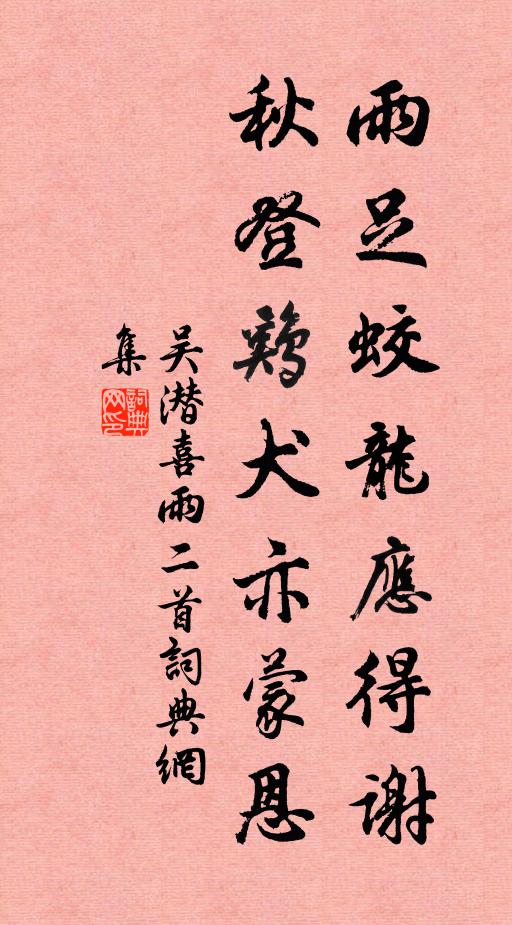 雨足蛟龍應得謝
秋登鷄犬亦蒙恩
吴潛喜雨二首詞典網
集
詞典
网印